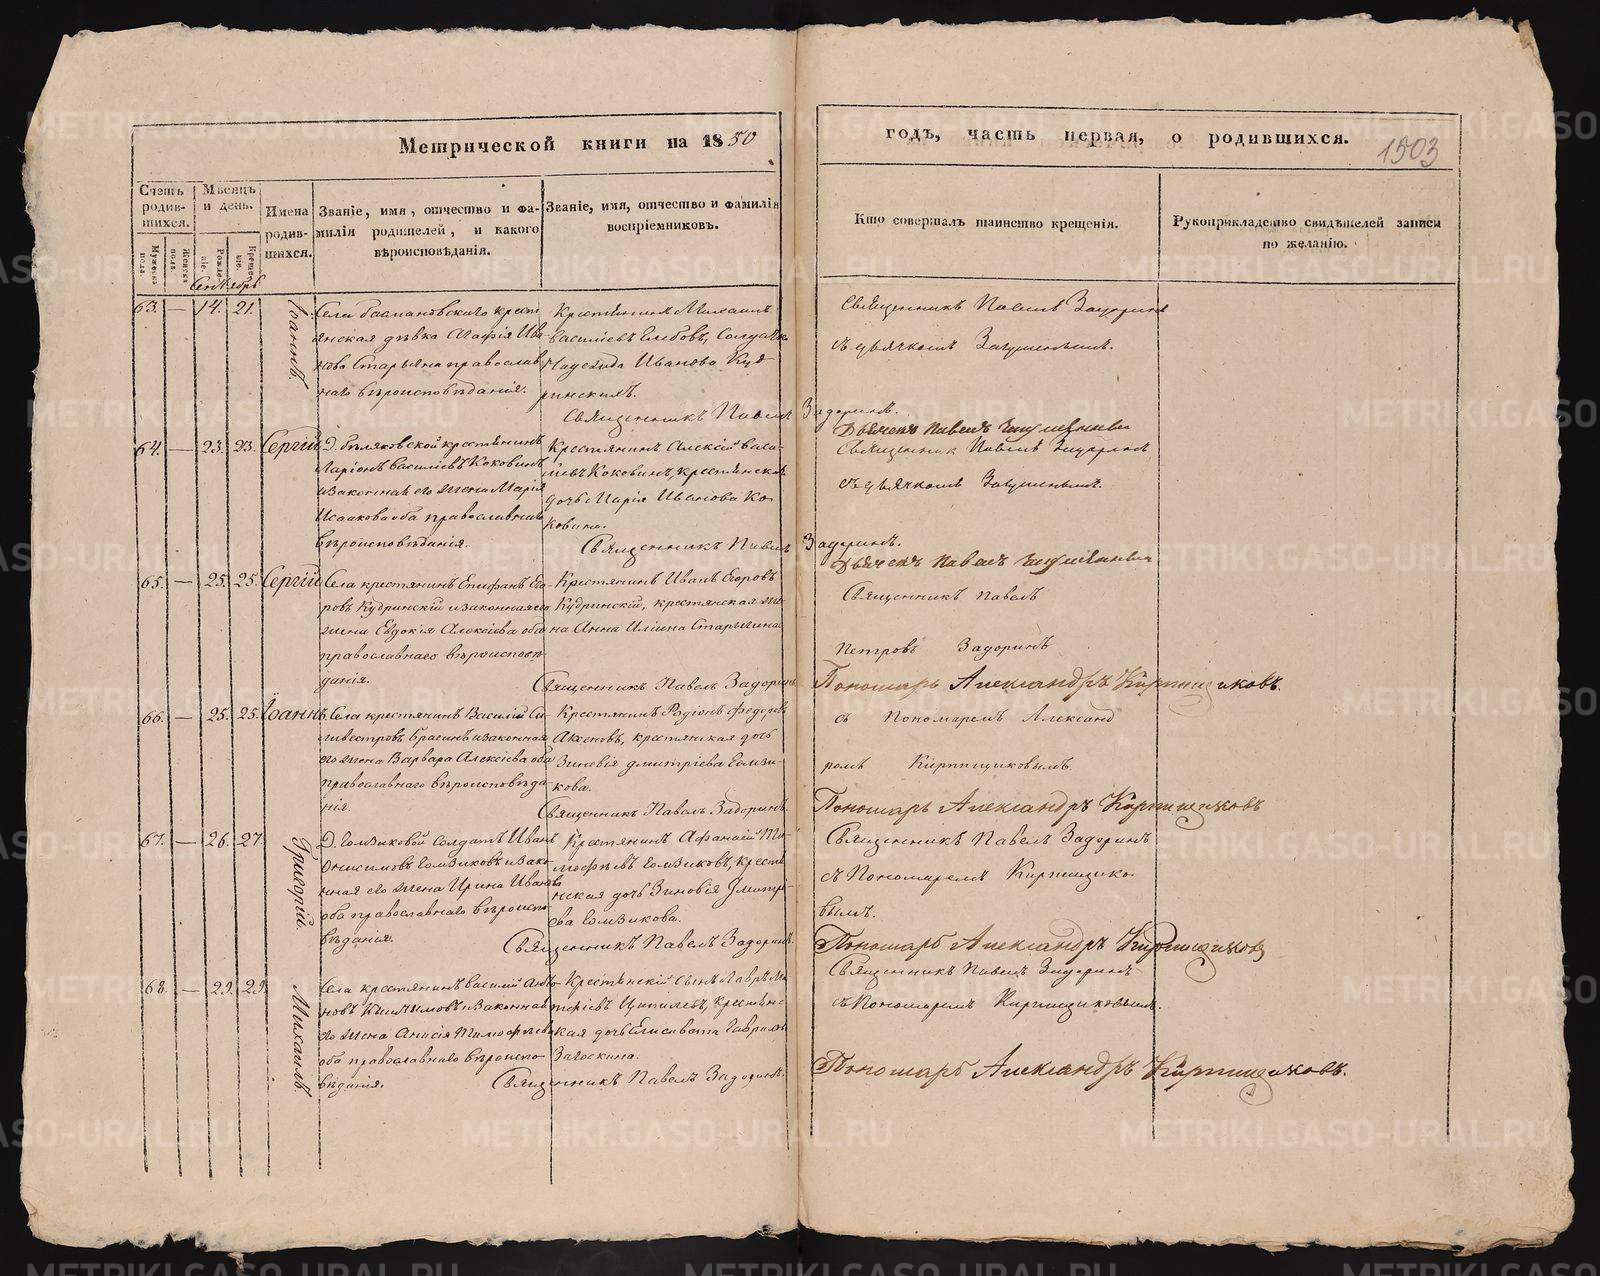 Метрической книги на 1850
годъ, часть первая, о родившихся.
1503
Счетъ родив-шихся.
Мѣсяцъ и день.
Имена родив-шихся.
Званіе, имя, отчество и фа-
милія родителей, и какого
вѣроисповѣданія.
Званіе, имя, отчество и фамилія
воспріемниковъ.
Кто совершалъ таинство крещенія.
Рукоприкладство свидѣтелей записи
по желанію.
Мужеска пола.
Женска пола.
Рожде-ніе.
Креще-ніе.
Сентябрь
63. — 14. 21.
Іоаннъ.
Села крест
янская дѣвка Агафія Ива
нова православ
наго вѣроисповѣданія.
Крестьянинъ Михаилъ
Васильевъ
Надежда Иванова
Священникъ Павелъ Задоринъ.
Священникъ Павелъ Задоринъ
съ дьячкомъ
64. — 23. 23.
Сергій
крестьянинъ
Ларіонъ Васильевъ Коковинъ
и законная его жена Марія
Исаакова оба православнаго
вѣроисповѣданія.
Крестьянинъ Алексій Васи-
льевъ Коковинъ, крестьянская
дочь Марія Иванова Ко-
ковина.
Священникъ Павелъ Задоринъ.
Дьячекъ Павелъ
Священникъ Павелъ Задоринъ
съ дьячкомъ
65. — 25. 25.
Сергій
Села крестьянинъ Епифанъ Его-
ровъ Кудринскій и законная его
жена Евдокія Алексіева оба
православнаго вѣроисповѣ-
данія.
Крестьянинъ Иванъ Егоровъ
Кудринскій, крестьянская же-
на Анна Иліина Старыгина
Священникъ Павелъ Задоринъ
Дьячекъ Павелъ
Священникъ Павелъ
Петровъ Задоринъ
Пономарь Александръ Кирпищиковъ.
66. — 25. 25.
Іоаннъ
Села крестьянинъ Василій Си-
ливестровъ Брагинъ и законная
его жена Варвара Алексіева оба
православнаго вѣроисповѣда-
нія.
Крестьянинъ Родіонъ Федоровъ
Аксеновъ, крестьянская дочь
Зиновія Дмитріева Голзи-
кова.
Священникъ Павелъ Задоринъ
съ Пономаремъ Александ
ромъ Кирпищиковымъ.
Пономарь Александръ Кирпищиковъ
67. — 26. 27.
Григорій.
Д. Голзиковой Солдатъ Иванъ
Онисимовъ Голзиковъ и закон-
ная его жена Ирина Иванова
оба православнаго вѣроиспо-
вѣданія.
Крестьянинъ Афанасій Ти-
мофѣевъ Голзиковъ, кресть
янская дочь Зиновія Дмитрі-
ева Голзикова.
Священникъ Павелъ Задоринъ.
Священникъ Павелъ Задоринъ
съ Пономаремъ Кирпищико-
вымъ.
Пономарь Александръ Кирпищиковъ
68. — 29. 29.
Михаилъ
Села крестьянинъ Василій
и законная
его жена Анисія Тимофѣева
оба православнаго вѣроиспо-
вѣданія.
Крестьянскій сынъ Лавръ
крестьянс
кая дочь Елисавета Гаврилова
Загоскина.
Священникъ Павелъ Задоринъ.
Священникъ Павелъ Задоринъ
съ Пономаремъ Кирпищиковымъ.
Пономарь Александръ Кирпищиковъ.
METRIKI.GASO-URAL.RU